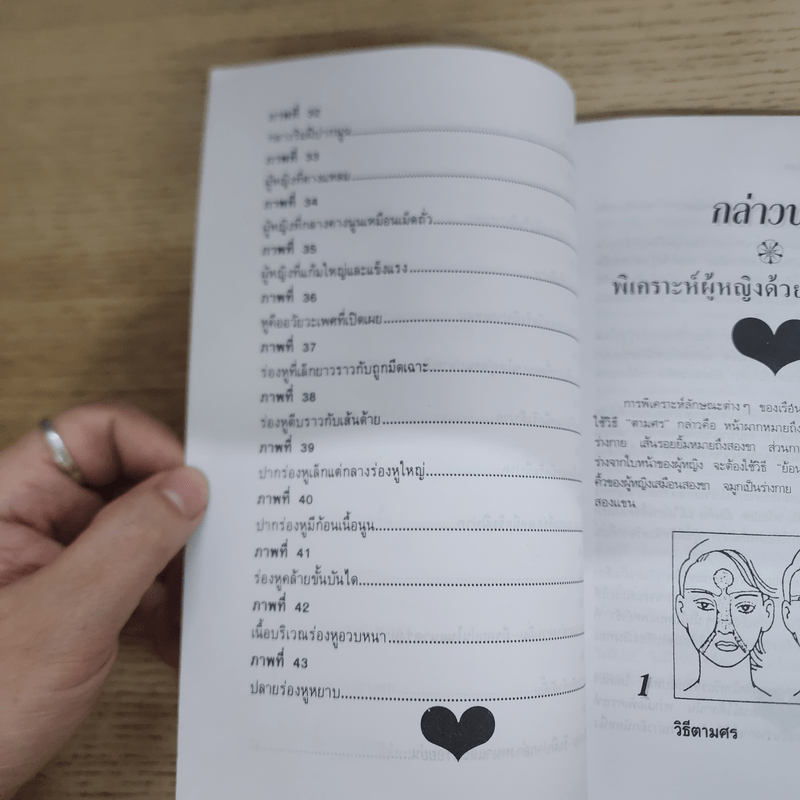 ภาพที่ 32
ภาพที่ 33
ผู้หญิงที่คางแหลม
ภาพที่ 34
ผู้หญิงที่กลางคางนูนเหมือนเม็ดถั่ว
ภาพที่ 35
ผู้หญิงที่แก้มใหญ่และแข็งแรง
ภาพที่ 36
หูคืออวัยวะเพศที่เปิดเผย
ภาพที่ 37
ร่องหูที่เล็กยาวราวกับถูกมีดเฉาะ
ภาพที่ 38
ร่องหูตีบราวกับเส้นด้าย
ภาพที่ 39
ปากร่องหูเล็กแต่กลางร่องหูใหญ่
ภาพที่ 40
ปากร่องหูมีก้อนเนื้อนูน
ภาพที่ 41
ร่องหูคล้ายขั้นบันได
ภาพที่ 42
เนื้อบริเวณร่องหูอวบหนา
ภาพที่ 43
ปลายร่องหูหยาบ
กล่าว
พิเคราะห์ผู้หญิงด้วย
การพิเคราะห์ลักษณะต่างๆ ของเรือน
ใช้วิธี "ตามศร" กล่าวคือ หน้าผากหมายถึง
ร่างกาย เส้นรอยยิ้มหมายถึงสองขา ส่วนกา
ร่างจากใบหน้าของผู้หญิง จะต้องใช้วิธี "ย้อน
คิ้วของผู้หญิงเสมือนสองขา จมูกเป็นร่างกาย
สองแขน
1
วิธีตามศร